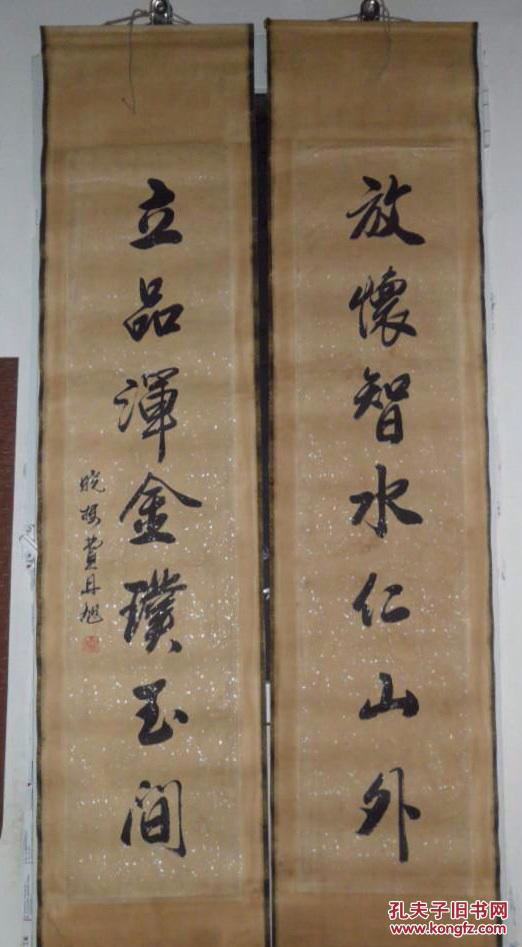 放懷智水仁山外
立品渾金璞玉間
曉樓費丹旭
孔夫子旧书网
www.kongfz.com